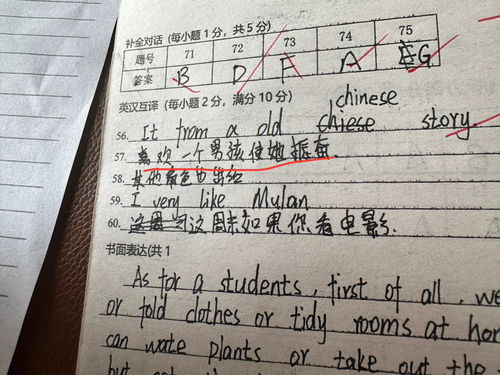 补全对话 (每小题1分,共5分)
题号 71 72 73 74 75
答案 B D F A G
英汉互译 (每小题2分,满分10分)
chinese
56. It from a old chiese story
57. 喜欢一个男孩使她振奋.
58. 其他角色也出给
59. I very like Mulan
60. 这周末如果你看电影.
书面表达(共1
As for a students, first of all, we
or fold clothes or tidy rooms at hom
can wate plants or take out the
but not